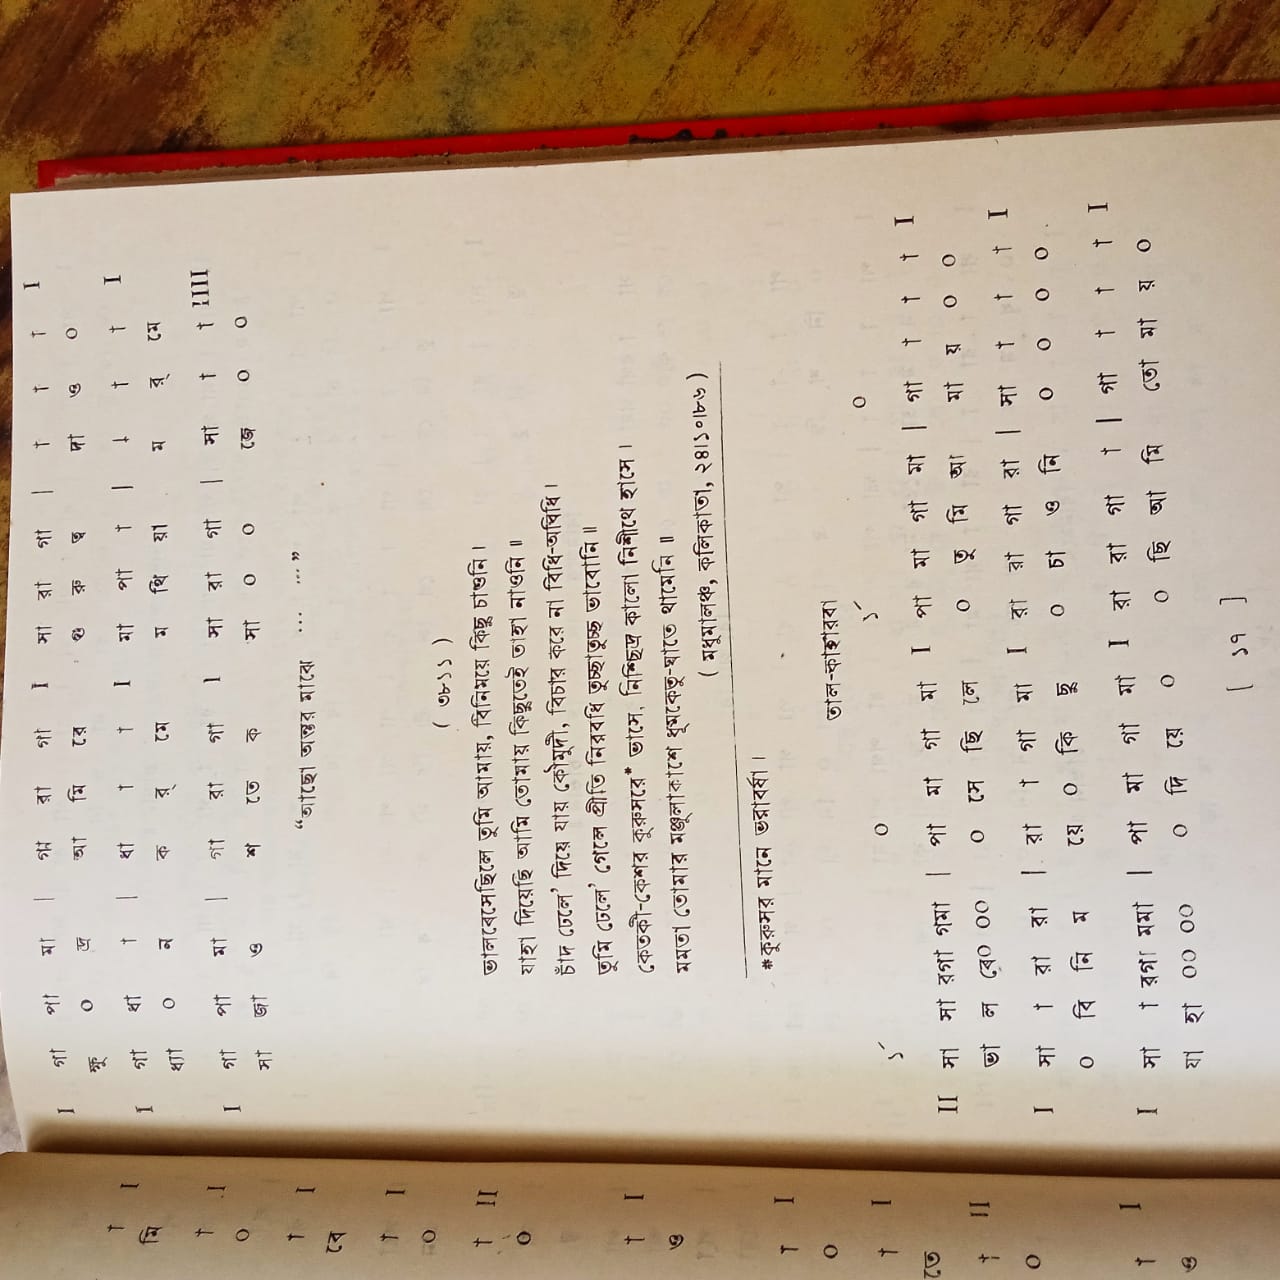 I গা পা মা | গা রা গা I সা রা গা | † † † I
ক্ষু ০ দ্র আ মি রে গু রু ত্ব দা ও ০
I গা ধা † | ধা † † I মা পা † | † † † I
ধ্যা ০ ন ক র্ মে ম থি য়া ম র্ মে
I গা পা মা | গা রা গা I সা রা গা | সা † † IIII
সা জা ও শ তে ক সা ০ ০ জে ০ ০
“আছো অন্তর মাঝে ... ...”
( ৩৮১১ )
ভালবেসেছিলে তুমি আমায়, বিনিময়ে কিছু চাওনি ।
যাহা দিয়েছি আমি তোমায় কিছুতেই তাহা নাওনি ॥
চাঁদ ঢেলে’ দিয়ে যায় কৌমুদী, বিচার করে না বিধি-অবিধি ।
তুমি ঢেলে’ গেলে প্রীতি নিরবধি তুচ্ছাতুচ্ছ ভাবোনি ॥
কেতকী-কেশর কুরুসরে* ভাসে, নিশ্ছিদ্র কালো নিশীথে হাসে ।
মমতা তোমার মঞ্জুলাকাশে ধূমকেতু-ঘাতে থামেনি ॥
( মধুমালঞ্চ, কলিকাতা, ২৪।১০।৮৬ )
*কুরুসর মানে ভরাবর্ষা ।
তাল-কাহারবা
১´ ০ ১´ ০
II সা সা রগা গমা | পা মা গা মা I পা মা গা মা | গা † † † I
ভা ল বে০ ০০ ০ সে ছি লে ০ তু মি আ মা য় ০ ০
I সা † রা রা | রা † গা মা I রা রা গা রা | সা † † † I
০ বি নি ম য়ে ০ কি ছু ০ চা ও নি ০ ০ ০ ০
I সা † রগা মমা | পা মা গা মা I রা রা গা † | গা † † † I
যা হা ০০ ০০ ০ দি য়ে ০ ০ ছি আ মি তো মা য় ০
[ ১৭ ]
† I
মি
† I
০
† I
বে
† I
০
† II
০
† I
ও
† I
০
† I
তে
† II
০
† I
ও